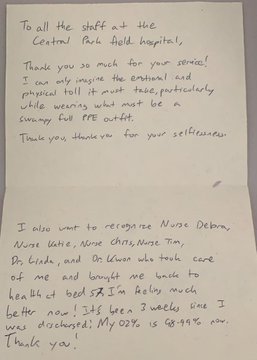 To all the staff at the
Central Park field hospital,
Thank you so much for your service!
I can only imagine the emotional and
physical toll it must take, particularly
while wearing what must be a
swampy full PPE outfit.
Thank you, thank you for your selflessness.
I also want to recognize Nurse Debora,
Nurse Katie, Nurse Chris, Nurse Tim,
Dr. Linda, and Dr. Kwon who took care
of me and brought me back to
health at bed 57. I'm feeling much
better now! It's been 3 weeks since I
was discharged; My O2% is 98-99% now.
Thank you!